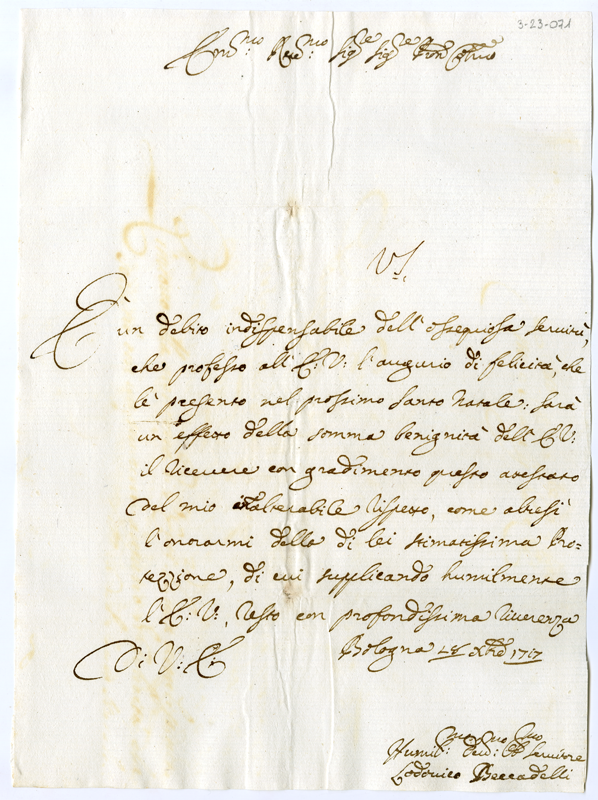 3-23-071
Em.mo Rev.mo Sig.re Sig.re Pron Col.mo
È un debito indispensabile dell'ossequiosa servitù,
che professo all'E: V: l'augurio di felicità, che
le presento nel prossimo Santo Natale: sarà
un'effetto della somma benignità dell'E V:
il ricevere con gradimento questo attestato
del mio inalterabile rispetto, come altresì
l'onorarmi della di lei stimatissima Pro=
tezzione, di cui supplicando humilmente
l'E: V:, resto con profondissima riverenza
Di V: E: Bologna Xbre 1717
Humil:mo Dev:mo Servitore
Lodovico Beccadelli